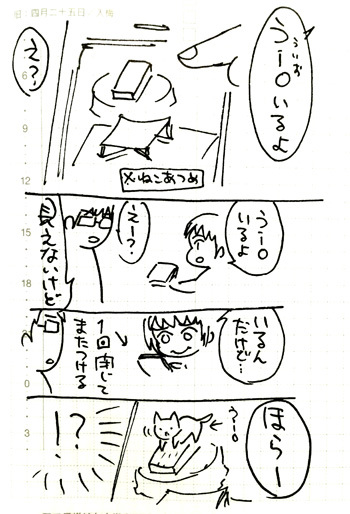 四月二十五日
うーolいるよ
うぃお
え?
※ねこあつめ
うーo
いるよ
えー?
見えないけど
いるんだけど…
1回閉じて
またつける
ほらー
うーo
!?
6
9
12
15
18
0
3